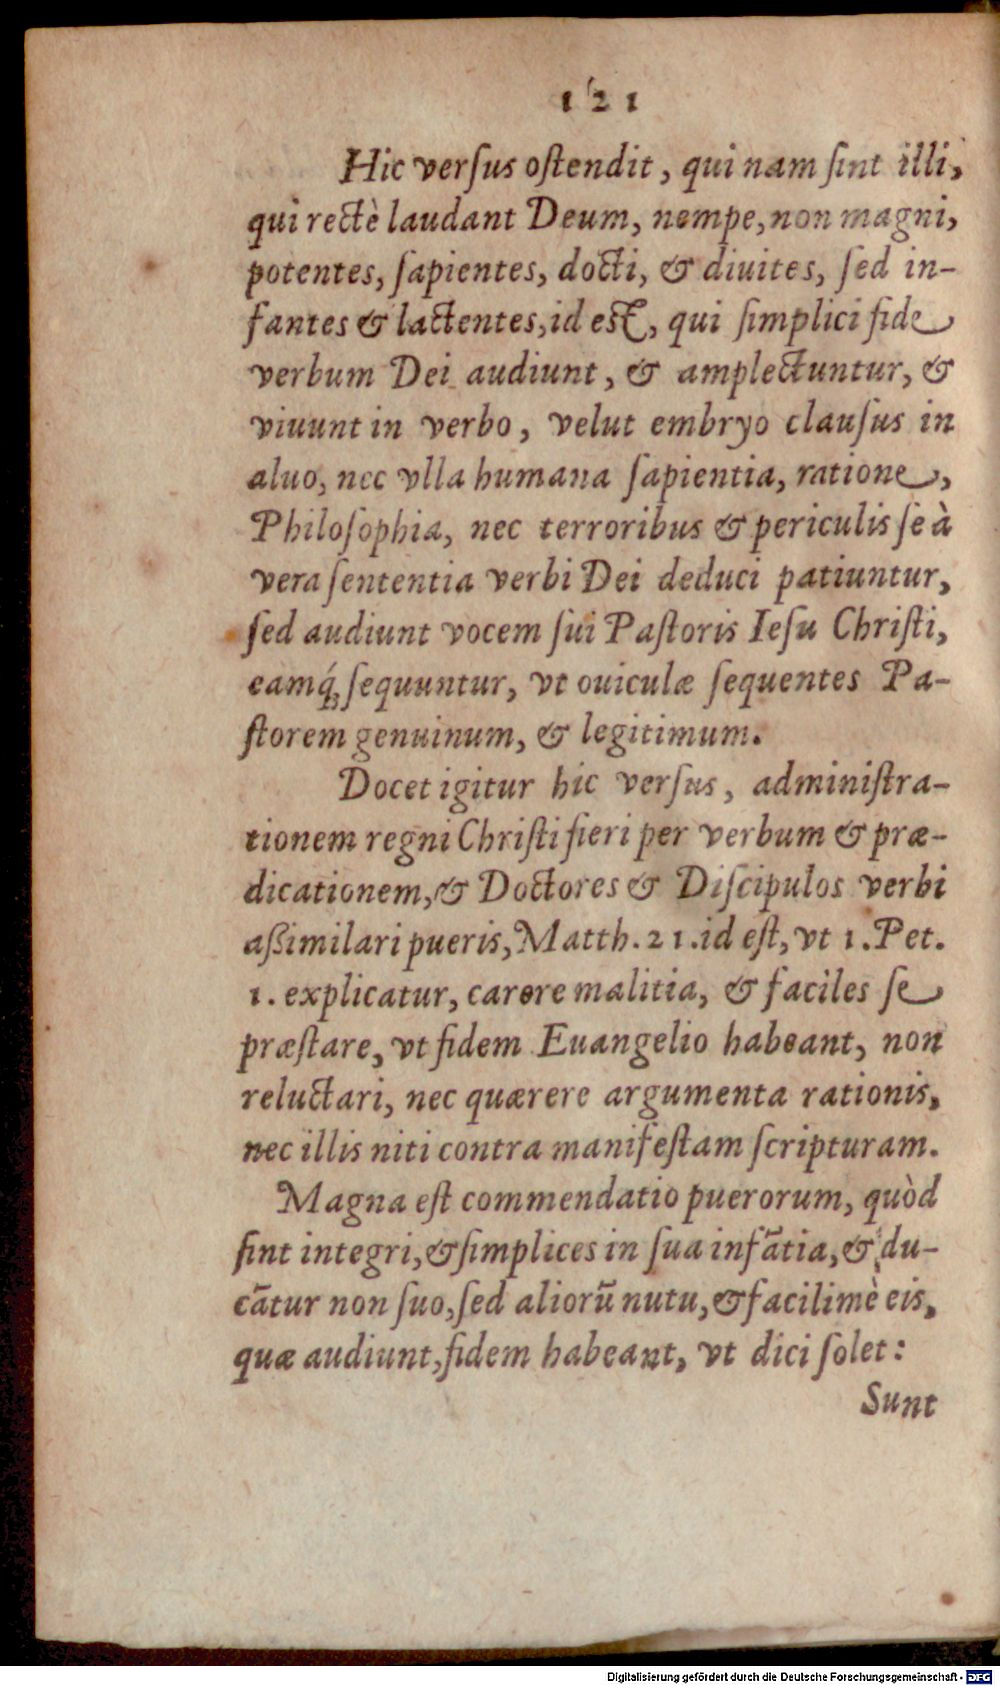 121
Hic verſus oſtendit, qui nam ſint illi,
qui rectè laudant Deum, nempe, non magni,
potentes, ſapientes, docti, & diuites, ſed in-
fantes & lactentes, id eſt, qui ſimplici fide
verbum Dei audiunt, & amplectuntur, &
viuunt in verbo, velut embryo clauſus in
aluo, nec vlla humana ſapientia, ratione,
Philoſophia, nec terroribus & periculis ſe à
vera ſententia verbi Dei deduci patiuntur,
ſed audiunt vocem ſui Paſtoris Ieſu Chriſti,
eamq́; ſequuntur, vt ouiculæ ſequentes Pa-
ſtorem genuinum, & legitimum.
Docet igitur hic verſus, adminiſtra-
tionem regni Chriſti fieri per verbum & præ-
dicationem, & Doctores & Diſcipulos verbi
aßimilari pueris, Matth. 21. id eſt, vt 1. Pet.
1. explicatur, carere malitia, & faciles ſe
præſtare, vt fidem Euangelio habeant, non
reluctari, nec quærere argumenta rationis,
nec illis niti contra manifeſtam ſcripturam.
Magna eſt commendatio puerorum, quòd
ſint integri, & ſimplices in ſua infãtia, & du-
cãtur non ſuo, ſed aliorũ nutu, & facilimè eis,
quæ audiunt, fidem habeant, vt dici ſolet:
Sunt
Digitalisierung gefördert durch die Deutsche Forschungsgemeinschaft - DFG